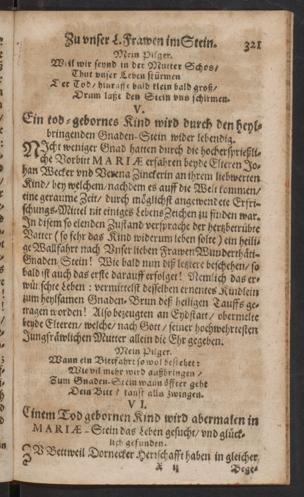 Zu vnser L. Frawen im Stein. 321
Mein Pilger.
Weil wir seynd in der Mutter Schos/
Thut vnser Leben stürmen
Der Tod/ hinraffe bald klein bald groß/
Drum laßt den Stein vns schirmen.
V.
Ein tod-gebornes Kind wird durch den heyl-
bringenden Gnaden-Stein wider lebendig.
NIcht weniger Gnad hatten durch die hochersprießli-
che Vorbitt MARIÆ erfahren beyde Elteren Jo-
han Wecker vnd Verena Zinckerin an ihrem liebwerten
Kind/ bey welchem/ nachdem es auff die Welt kommen/
eine geraume Zeit/ durch möglichst angewendete Erfri-
schungs-Mittel nit einiges Lebens Zeichen zu finden war.
In disem so elenden Zustand versprache der hertzbetrübte
Vatter (so fehr das Kind widerum leben solte) ein heili-
ge Wallfahrt nach Vnser lieben Frawen Wunderthäti-
Gnaden Stein! Wie bald nun diß letstere beschehen/ so
bald ist auch das erste darauff erfolget! Nemlich das er-
wünschte Leben: vermittelst desselben erneutes Kindlein
zum heylsamen Gnaden-Brun deß heiligen Tauffs ge-
tragen worden! Also bezeugten an Eydstatt/ obermelte
beyde Elteren/ welche/ nach Gott/ seiner hochwehrtesten
Jungfräwlichen Mutter allein die Ehr gegeben.
Mein Pilger.
Wann ein Bittfahrt so wol bestehet:
Wie vil mehr wird außbringen/
Zum Gnaden-Stein wann öffter geht
Dein Bitt/ taust alls zwingen.
VI.
Einem Tod gebornen Kind wird abermalen in
MARIÆ-Stein das Leben gesucht/ vnd glück-
lich gefunden.
ZV Bettweil Dornecker Herrschafft haben in gleicher
X ij Bege-